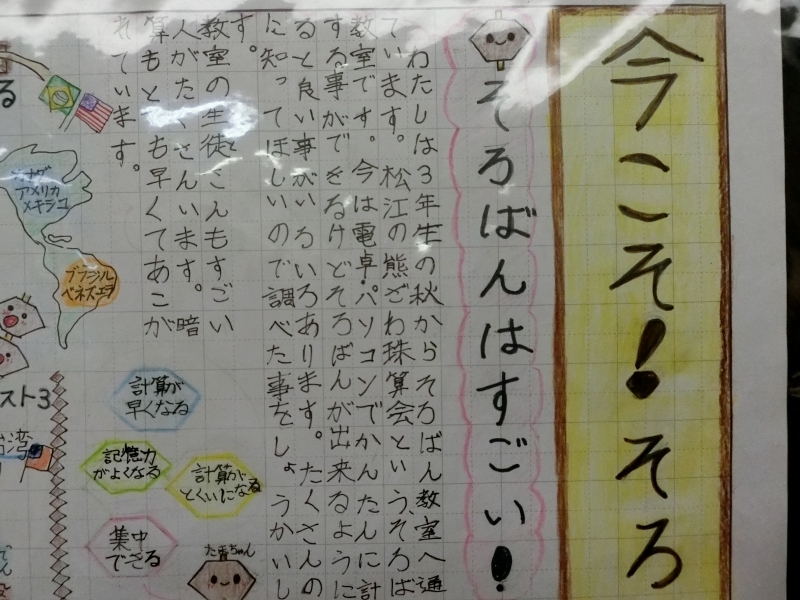 今こそ!そろ
そろばんはすごい!
わたしは3年生の秋からそろばん教室へ通
ています。松江の熊ざわ珠算会というそろば
教室です。今は電卓・パソコンでかんたんに計
する事ができるけどそろばんが出来るように
ると良い事がいろいろあります。たくさんの
に知ってほしいので調べた事をしょうかいし
す。
教室の生徒さんもすごい
人がたくさんいます。暗
算もとても早くてあこが
れています。
計算が
早くなる
記憶力
がよくなる
計算が
とくいになる
集中
できる
る
カナダ
アメリカ
メキシコ
ブラジル
ベネズエラ
スト3
台湾